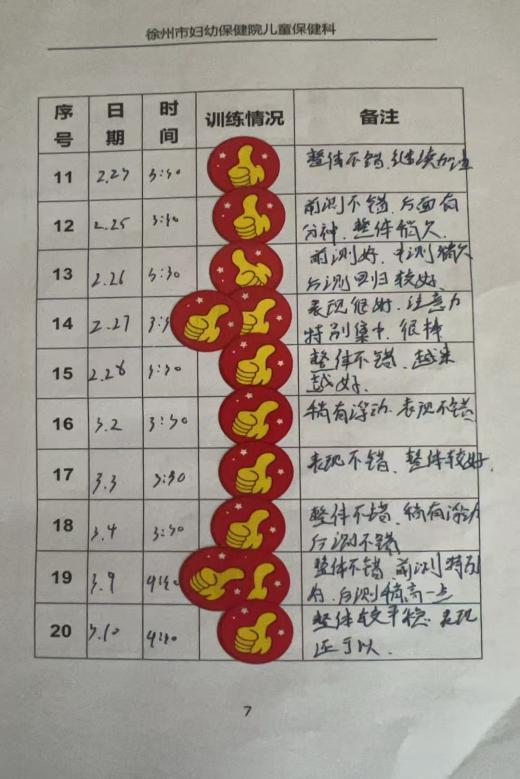 徐州市妇幼保健院儿童保健科
序号 日期 时间 训练情况 备注
11 整体不错.继续加油
12 2.25 前测不错.后面有
分神.整体稍欠.
13 2.26 3:30 前测好.中测稍欠
后测回归较好.
14 2.27 表现很好.注意力
特别集中.很棒
15 2.28 3:30 整体不错.越来
越好.
16 3.2 3:30 稍有浮动.表现不错
17 3.3 3:30 表现不错.整体较好.
18 3.4 3:30 整体不错.稍有浮动
后测不错
19 3.9 整体不错.前测特别
后测稍高一点
20 3.10 整体较平稳.表现
还可以.
7